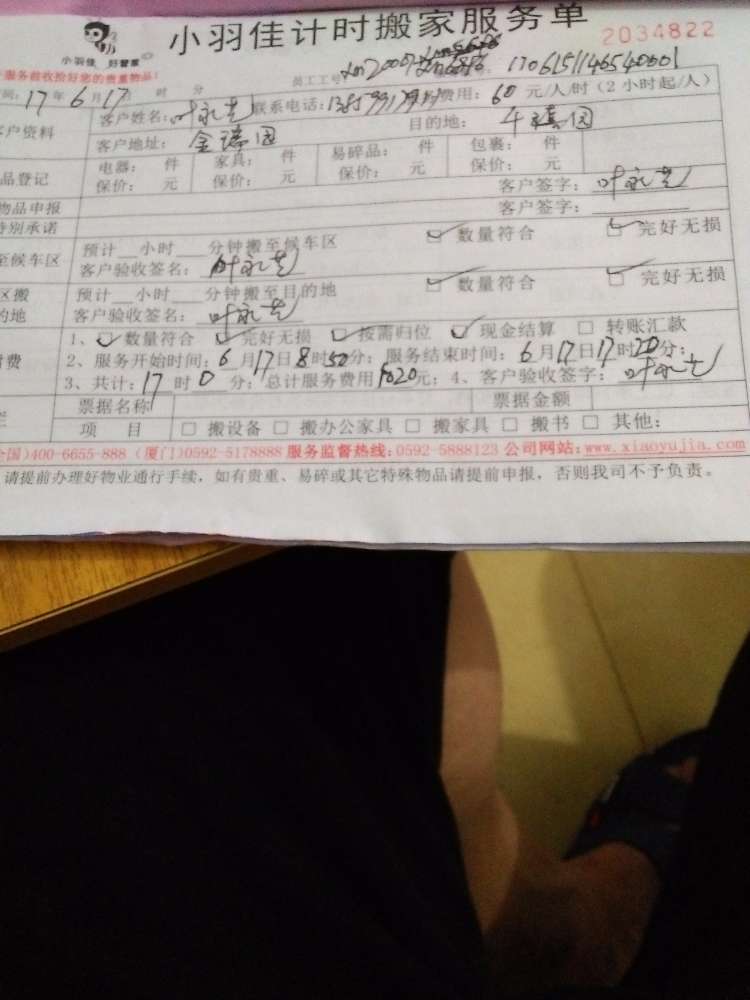 小羽佳计时搬家服务单
2034822
小羽佳 好管家
服务前收拾好您的贵重物品!
员工工号
17年6月17日 时 分 客户姓名:叶永 联系电话: 费用:60元/人/时(2小时起/人)
客户资料 客户地址:金瑞园 目的地:
品登记 电器: 件 家具: 件 易碎品: 件 包裹: 件
保价: 元 保价: 元 保价: 元 保价: 元
物品申报 客户签字:叶永
特别承诺 客户签字:
至候车区 预计__小时__分钟搬至候车区 数量符合 完好无损
客户验收签名:叶永
区搬 预计__小时__分钟搬至目的地 数量符合 完好无损
的地 客户验收签名:叶永
1、 数量符合 完好无损 按需归位 现金结算 转账汇款
费 2、服务开始时间:6月17日8时50分;服务结束时间:6月17日17时20分;
3、共计:17时0分;总计服务费用1020元;4、客户验收签字:叶永
票据名称 票据金额
项 目 搬设备 搬办公家具 搬家具 搬书 其他:
国)400-6655-888 (厦门)0592-5178888 服务监督热线:0592-5888123 公司网站:www.xiaoyujia.com
请提前办理好物业通行手续,如有贵重、易碎或其它特殊物品请提前申报,否则我司不予负责。